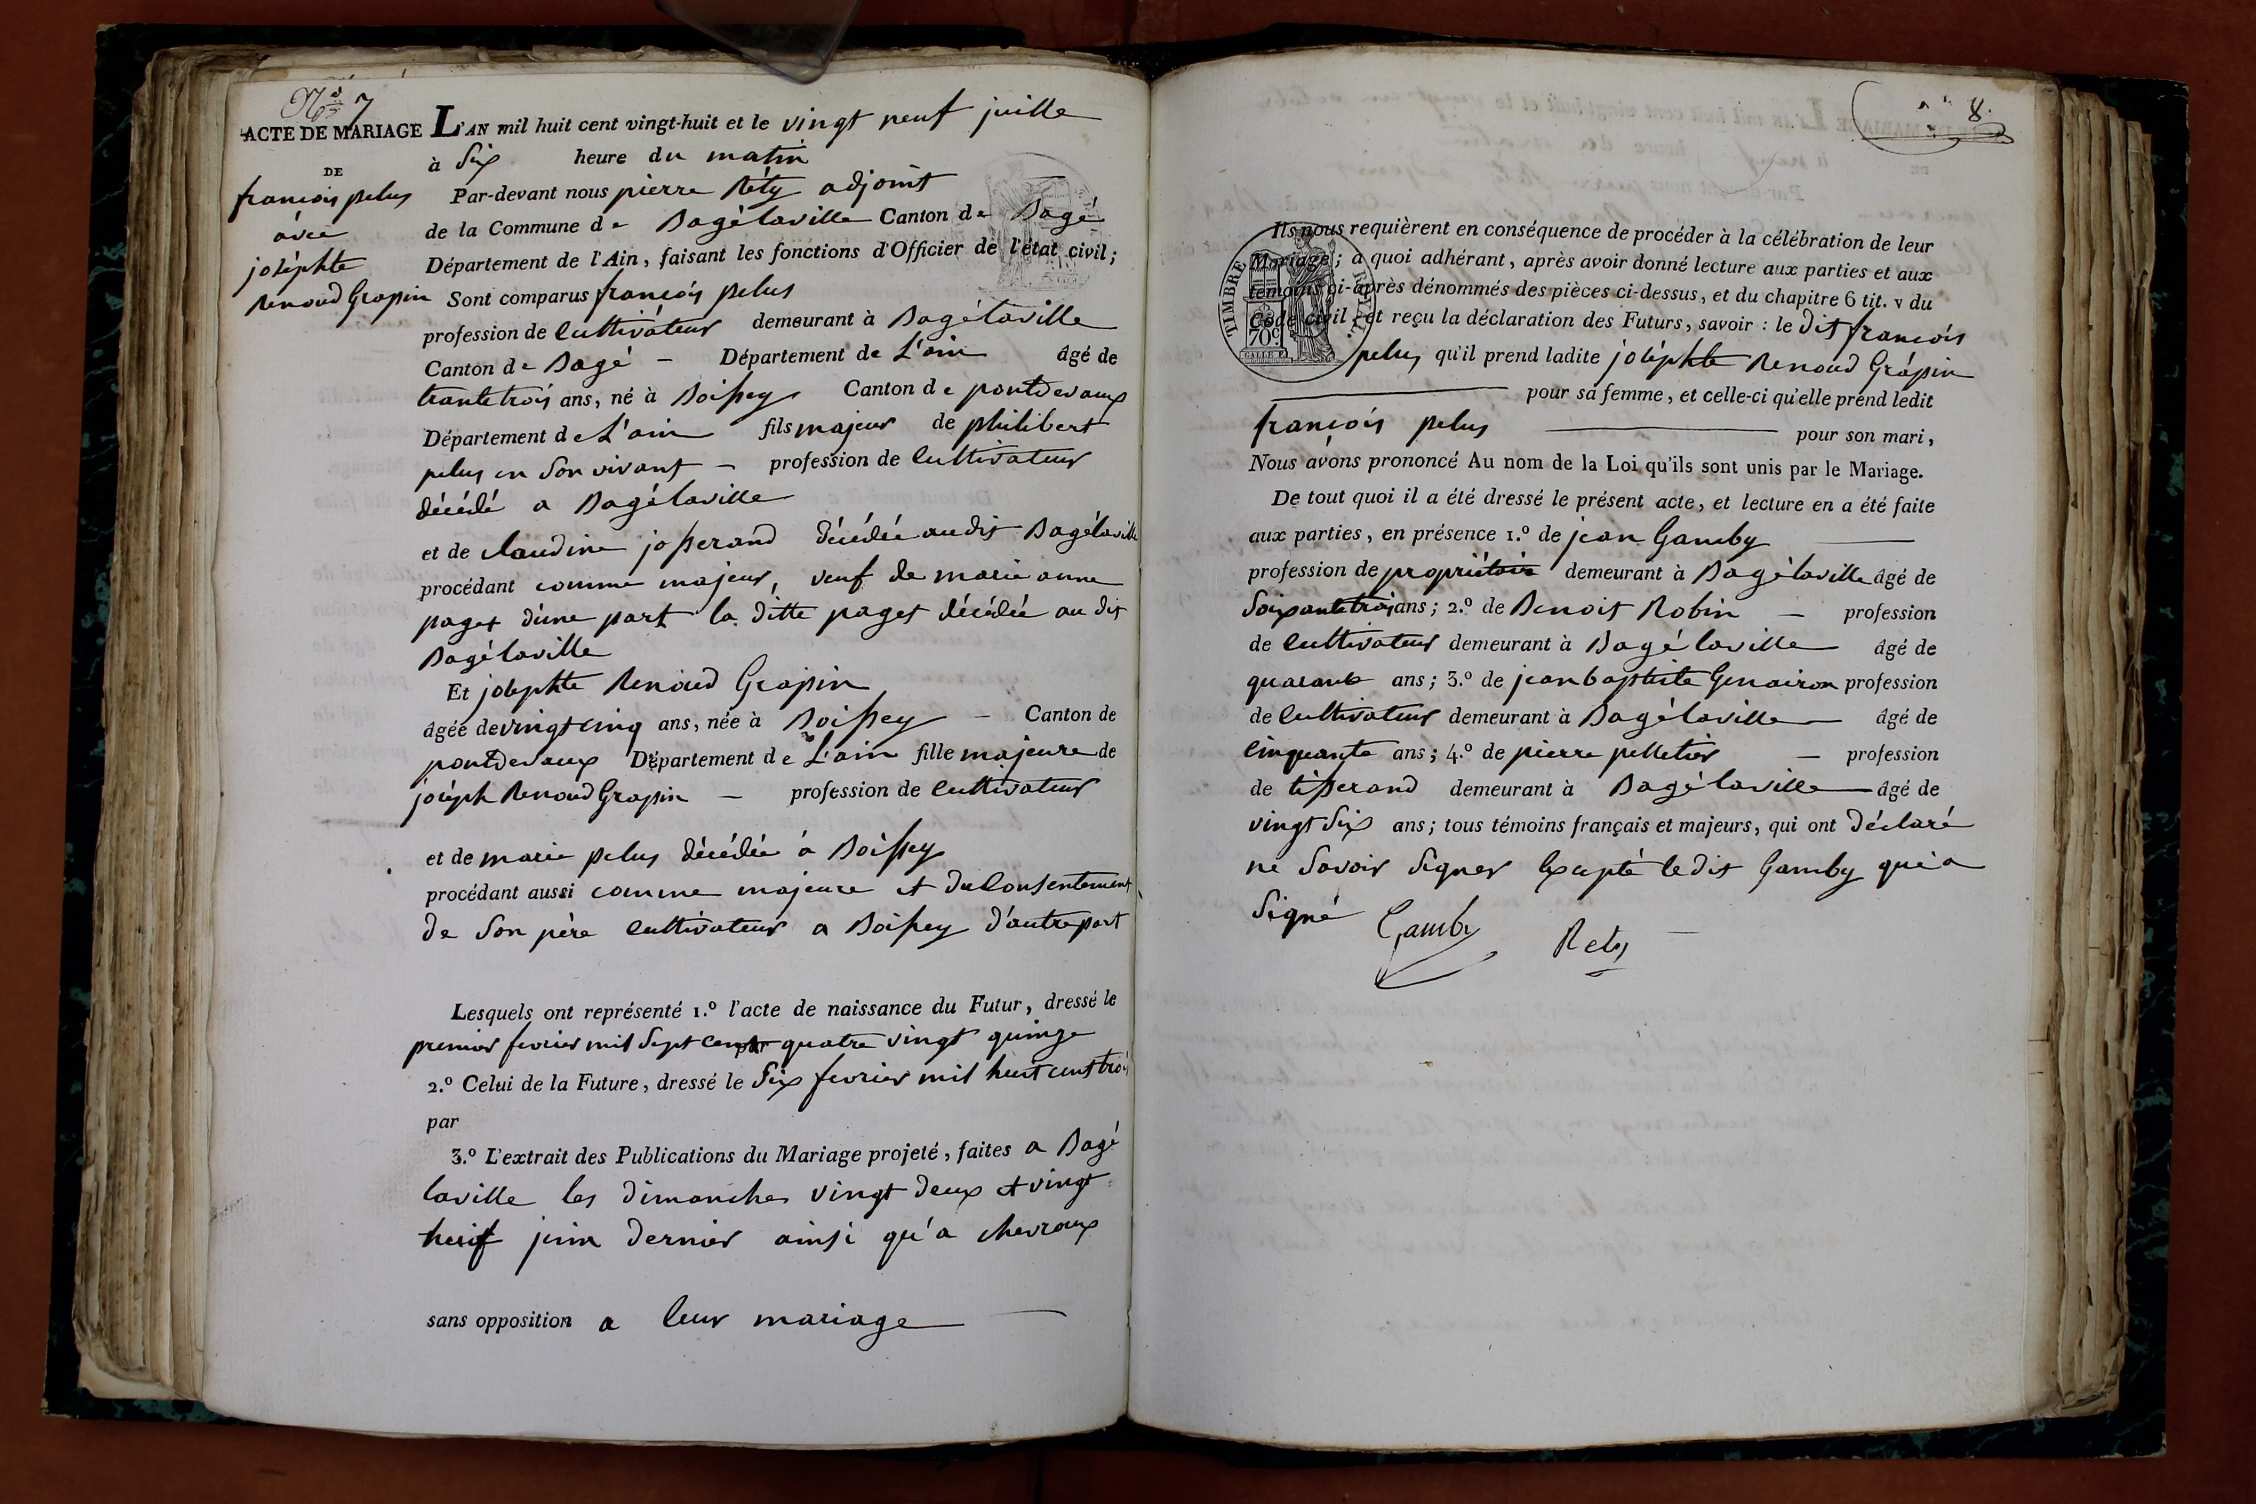 N.o 7
ACTE DE MARIAGE
DE
francois pelus
avec
joséphte
Renoud Grapin
L'AN mil huit cent vingt-huit et le vingt neuf juille
à Six heure du matin
Par-devant nous pierre Réty adjoint
de la Commune de Bagélaville Canton de Bagé
Département de l'Ain, faisant les fonctions d'Officier de l'état civil;
Sont comparus françois pelus
profession de Cultivateur demeurant à Bagélaville
Canton de Bagé – Département de L'ain âgé de
trantetrois ans, né à Boissey Canton de pontdevaux
Département de L'ain fils majeur de philibert
pelus en Son vivant – profession de Cultivateur
décédé a Bagélaville
et de claudine josserand décédée audit Bagélaville
procédant comme majeur, veuf de marie anne
paget d'une part la ditte paget décédée au dit
Bagélaville
Et josephte Renoud Grapin
âgée de vingt cinq ans, née à Boissey – Canton de
pontdevaux Département de L'ain fille majeure de
joséph Renoud Grapin – profession de Cultivateur
et de marie pelus décédée à Boissey
procédant aussi comme majeure et du Consentement
de Son père Cultivateur a Boissey d'autre part
Lesquels ont représenté 1.º l'acte de naissance du Futur, dressé le
premier fevrier mil Sept cent quatre vingt quinze
2.º Celui de la Future, dressé le Six fevrier mil huit cent trois
par
3.º L'extrait des Publications du Mariage projeté, faites a Bagé
laville les dimanches vingt deux et vingt
neuf juin dernier ainsi qu'a chevroux
sans opposition a leur mariage
8.
TIMBRE ROYAL
70c
Ils nous requièrent en conséquence de procéder à la célébration de leur
Mariage; à quoi adhérant, après avoir donné lecture aux parties et aux
témoins ci-après dénommés des pièces ci-dessus, et du chapitre 6 tit. v du
Code civil, et reçu la déclaration des Futurs, savoir : le dit françois
pelus qu'il prend ladite joséphte Renoud Grapin
pour sa femme, et celle-ci qu'elle prend ledit
françois pelus pour son mari,
Nous avons prononcé Au nom de la Loi qu'ils sont unis par le Mariage.
De tout quoi il a été dressé le présent acte, et lecture en a été faite
aux parties, en présence 1.º de jean Gamby
profession de propriétaire demeurant à Bagélaville âgé de
Soixantetrois ans; 2.º de Benoit Robin – profession
de Cultivateur demeurant à Bagélaville âgé de
quarante ans; 3.º de jean baptiste Genairon profession
de Cultivateur demeurant à Bagélaville âgé de
Cinquante ans; 4.º de pierre pelletier – profession
de tisserand demeurant à Bagélaville âgé de
vingt Six ans; tous témoins français et majeurs, qui ont déclaré
ne Savoir Signer Excepté ledit Gamby qui a
Signé Gamby Rety